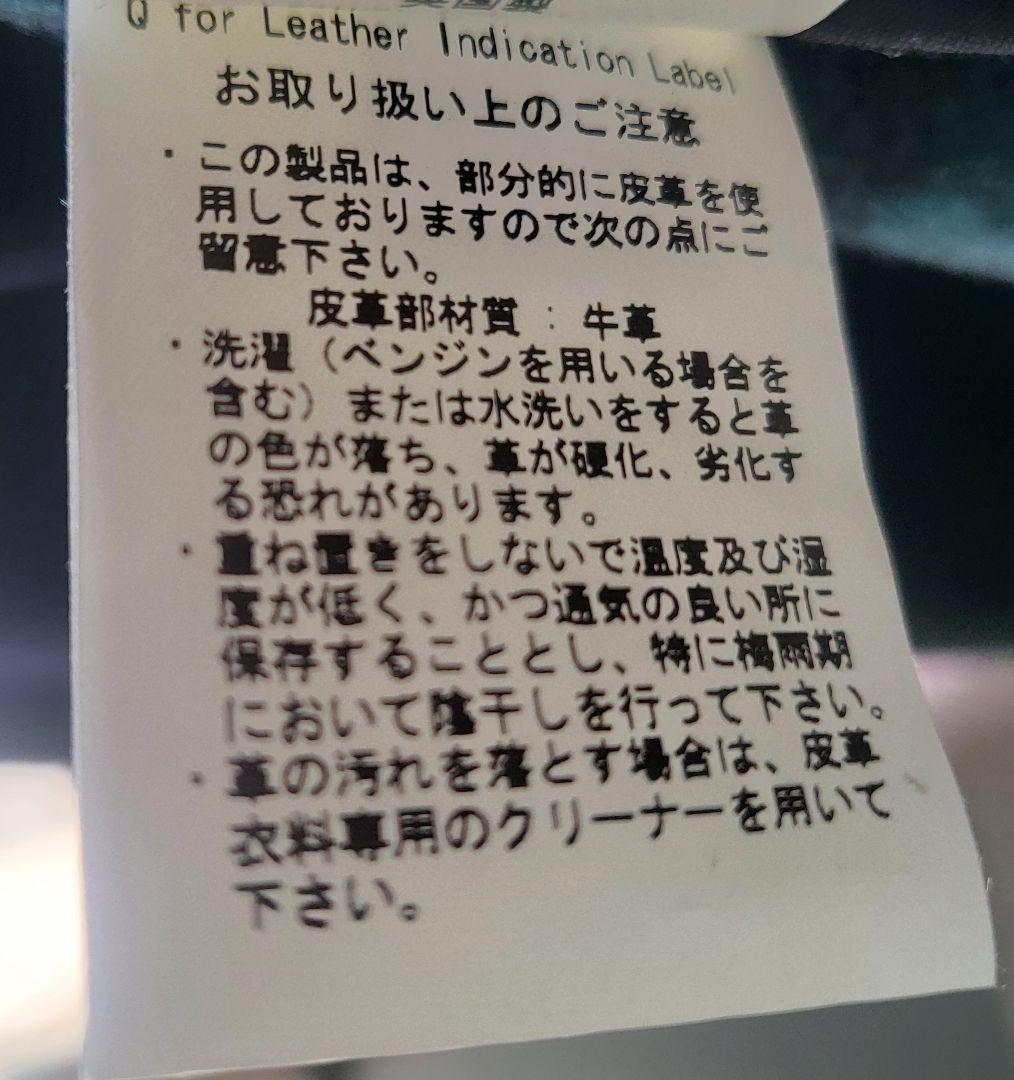 Q for Leather Indication Label
お取り扱い上のご注意
・この製品は、部分的に皮革を使
用しておりますので次の点にご
留意下さい。
皮革部材質 : 牛革
・洗濯（ベンジンを用いる場合を
含む）または水洗いをすると革
の色が落ち、革が硬化、劣化す
る恐れがあります。
・重ね置きをしないで温度及び湿
度が低く、かつ通気の良い所に
保存することとし、特に梅雨期
において陰干しを行って下さい。
・革の汚れを落とす場合は、皮革
衣料専用のクリーナーを用いて
下さい。